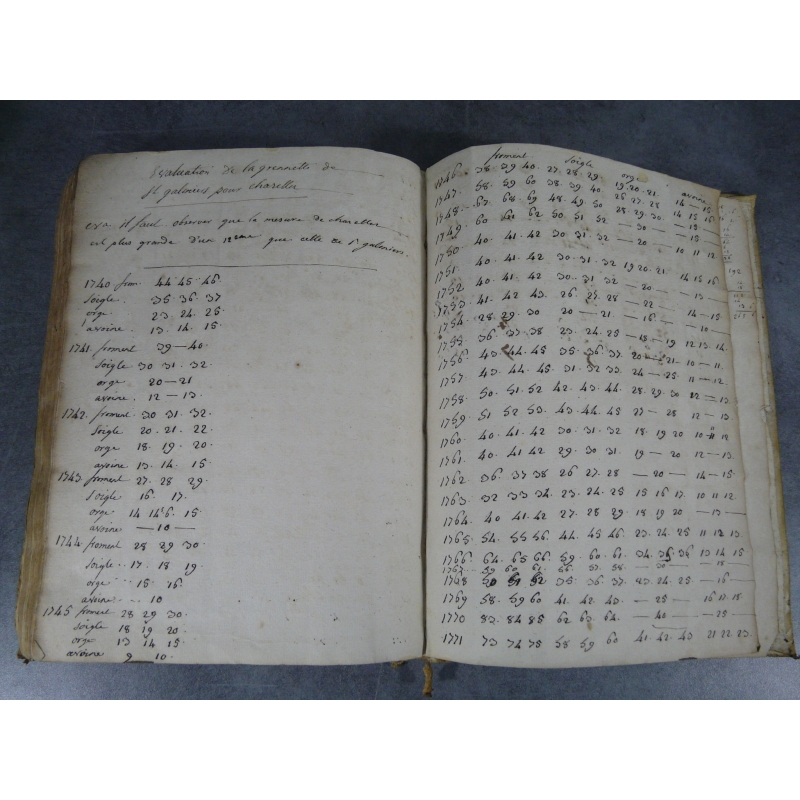 Evaluation de la grennette de
St galmier pour chazelles
il faut observer que la mesure de chazelles
est plus grande d'un que celle de St galmier.
1740 from. 44 · 45 · 46
Soigle 35 36 37
orge 23 · 24 · 25
avoine. 13 · 14 · 15
1741 froment 39 — 40
Soigle 30 31 · 32
orge 20 — 21
avoine. 12 — 13 ·
1742 froment 30 31 · 32
Soigle 20 · 21 · 22
orge 18 · 19 · 20
avoine 13 · 14 · 15
1743 froment 27 · 28 · 29
Soigle 16 · 17 ·
orge 14 15
avoine — 10 —
1744 froment 28 29 30
Soigle · · 17 · 18 19
orge 15 · 16
avoine 10
1745 froment 28 29 · 30
Soigle 18 19 20
orge 13 14 15
avoine 9 10 ·
froment Soigle orge avoine
1746 · 38 · 39 40 · 27 · 28 · 29 · 19 · 20 · 21 · 14 — 15
1747 · 58 · 59 60 38 · 39 40 26 27 · 28 14 15 16
1748 · 67 · 68 · 69 48 · 49 50 28 · 29 · 30 · — 15 —
1749 · 60 61 62 50 51 52 — 30 —
1750 40 · 41 · 42 30 · 31 · 32 · — 20 — 10 11 12
1751 · 40 · 41 · 42 30 · 31 · 32 19 20 · 21 14 15 16
1752 40 · 41 · 42 30 · 31 · 32 — 20 — — 13 —
1753 41 · 42 · 43 26 · 27 · 28 — 22 — 14 — 15
1754 28 · 29 · 30 20 — 21 — 16 — — 10 —
1755 36 · 37 · 38 23 · 24 · 25 — 18 — 19 12 13 14
1756 43 44 · 45 35 36 · 37 · 20 — 21 10 — 11
1757 43 · 44 · 45 31 · 32 33 24 — 25 11 — 12
1758 · 50 · 51 · 52 42 · 43 · 44 28 · 29 · 30 12 — 13
1759 · 51 52 53 · 43 · 44 · 45 27 — 28 12 — 13
1760 · 40 · 41 · 42 30 · 31 · 32 18 19 20 10 11 12
1761 · 40 · 41 · 42 29 · 30 31 · 19 — 20 12 — 13
1762 36 · 37 38 26 · 27 · 28 — 20 — 14 — 15
1763 · 32 33 34 · 23 · 24 · 25 15 16 17 · 10 11 12
1764 · 40 41 · 42 27 · 28 29 18 19 20 — 13 —
1765 · 54 · 55 56 · 44 45 46 23 · 24 25 11 12 13
1766 · 64 · 65 66 · 59 · 60 · 61 34 35 36 13 14 15
1767 · 59 60 61 56 57 58 — 30 — — 15
1768 50 51 52 35 · 36 37 23 · 24 · 25 — 16 —
1769 58 · 59 60 41 · 42 · 43 — 25 — 16 17 18
1770 83 · 84 85 62 63 64 — 40 — — 25 —
1771 73 74 75 58 59 60 41 · 42 43 21 22 23